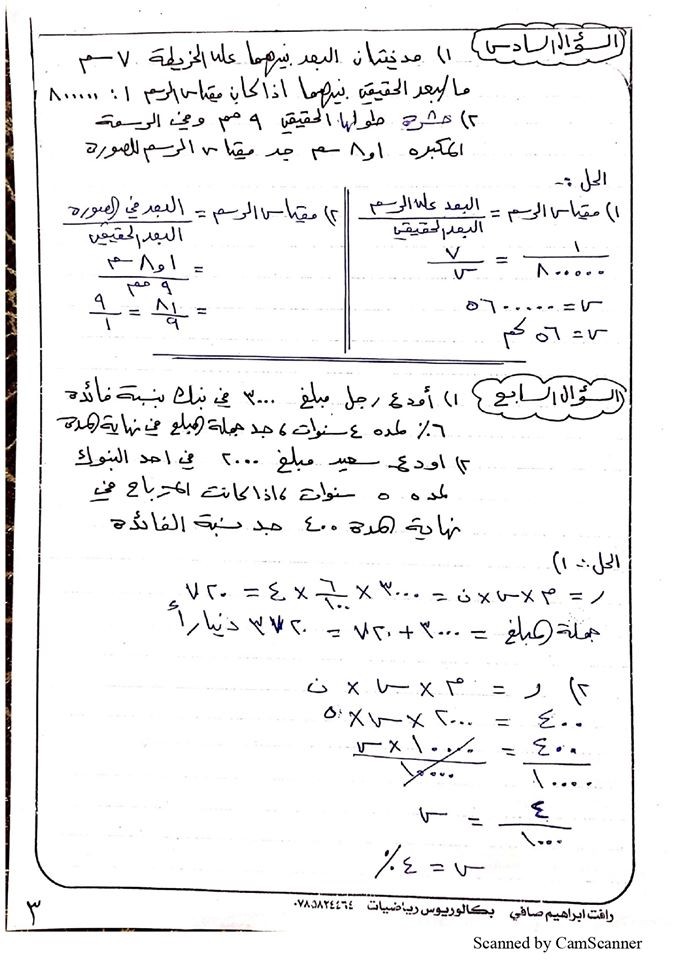 السؤال السادس
١) مدينتان البعد بينهما على الخريطة ٧ سم
ما البعد الحقيقي بينهما اذا كان مقياس الرسم ١ : ٨٠٠٠٠٠
٢) حشرة طولها الحقيقي ٩ مم وفي الرسمة
المكبره ٨و١ سم جد مقياس الرسم للصورة
الحل :-
١) مقياس الرسم = البعد على الرسم / البعد الحقيقي
١ / ٨٠٠٠٠٠ = ٧ / س
س = ٥٦٠٠٠٠٠
س = ٥٦ كم
٢) مقياس الرسم = البعد في الصورة / البعد الحقيقي
= ٨و١ سم / ٩ مم
= ٨١ / ٩ = ٩ / ١
السؤال السابع
١) أودع رجل مبلغ ٣٠٠٠ في بنك بنسبة فائدة
٦٪ لمده ٤ سنوات ، جد جملة المبلغ في نهاية المدة
٢) اودع سعيد مبلغ ٢٠٠٠ في احد البنوك
لمده ٥ سنوات ، اذا كانت الارباح في
نهاية المدة ٤٠٠ جد نسبة الفائدة
الحل :- ١)
ر = م × س × ن = ٣٠٠٠ × ٦ / ١٠٠ × ٤ = ٧٢٠
جملة المبلغ = ٣٠٠٠ + ٧٢٠ = ٣٧٢٠ ديناراً
٢) ر = م × س × ن
٤٠٠ = ٢٠٠٠ × س × ٥
٤٠٠ / ١٠٠٠٠ = ١٠٠٠٠ × س / ١٠٠٠٠
٤ / ١٠٠٠ = س
س = ٤٪
رافت ابراهيم صافي بكالوريوس رياضيات ٠٧٨٥٨٢٤٤٦٤
٣
Scanned by CamScanner